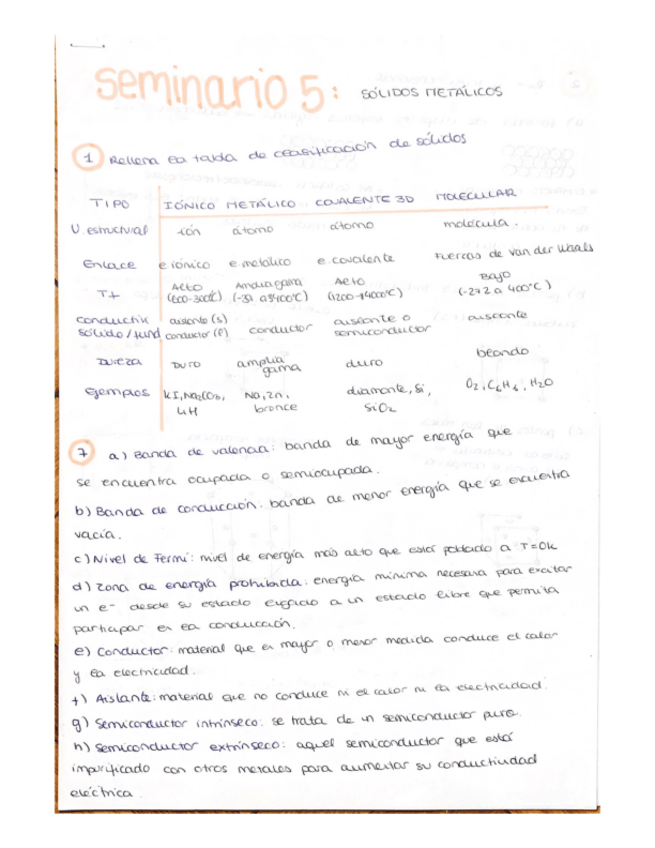 seminario 5: SÓLIDOS METÁLICOS
1 Rellena la tabla de clasificación de sólidos
TIPO IÓNICO METÁLICO COVALENTE 3D MOLECULAR
U. estructural ión átomo átomo molécula.
Enlace e iónico e metálico e. covalente Fuerzas de van der Waals
Tf Alto (600-3000ºC) Amplia gama (-39 a 3400ºC) Alto (1200-4000ºC) Bajo (-272 a 400ºC)
conductiv. sólido/fund aislante (s) conductor (l) conductor aislante o semiconductor aislante
Dureza Duro amplia gama duro blando
Ejemplos KI, Na2CO3, LiH Na, Zn, bronce diamante, Si, SiO2 O2, C6H6, H2O
7 a) Banda de valencia: banda de mayor energía que
se encuentra ocupada o semiocupada.
b) Banda de conducción: banda de menor energía que se encuentra
vacía.
c) Nivel de Fermi: nivel de energía más alto que está poblado a T=0K
d) Zona de energía prohibida: energía mínima necesaria para excitar
un e- desde su estado ligado a un estado libre que permita
participar en la conducción.
e) Conductor: material que en mayor o menor medida conduce el calor
y la electricidad.
f) Aislante: material que no conduce ni el calor ni la electricidad.
g) Semiconductor intrínseco: se trata de un semiconductor puro.
h) Semiconductor extrínseco: aquel semiconductor que está
impurificado con otros metales para aumentar su conductividad
eléctrica.